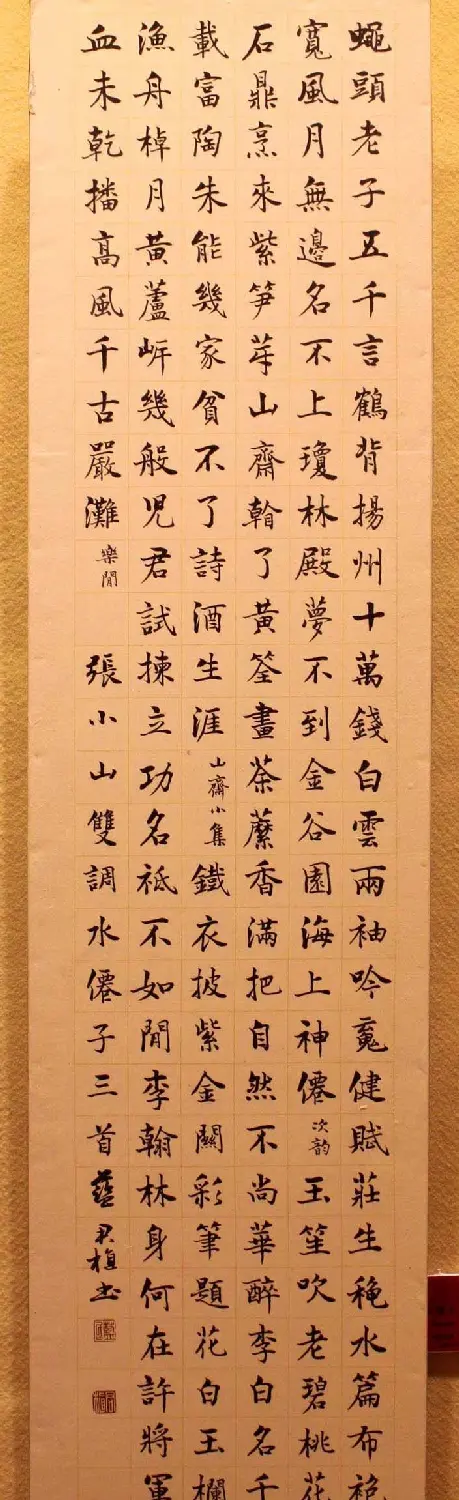 蠅頭老子五千言鶴背揚州十萬錢白雲兩袖吟䰟健賦莊生秋水篇布袍
寬風月無邊名不上瓊林殿夢不到金谷園海上神僊次韵玉笙吹老碧桃花
石鼎烹來紫笋芽山齋翰了黃筌畫荼蘼香滿把自然不尚華醉李白名千
載富陶朱能幾家貧不了詩酒生涯山齋小集鐵衣披紫金關彩筆題花白玉欄
漁舟棹月黃蘆岍幾般兒君試揀立功名祗不如閒李翰林身何在許將軍
血未乾播高風千古嚴灘樂閒張小山雙調水僊子三首